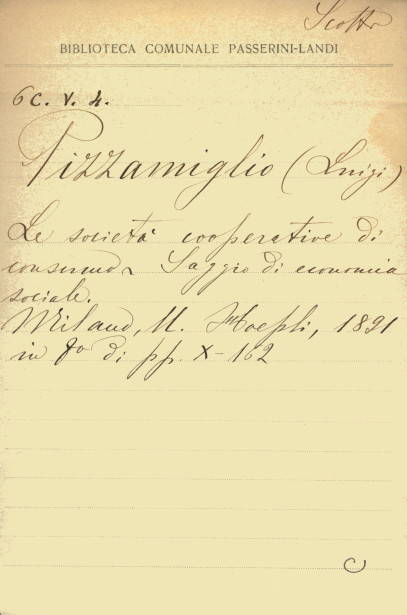 Scotti
BIBLIOTECA COMUNALE PASSERINI-LANDI
6 C. V. 4.
Pizzamiglio (Luigi)
Le società cooperative di
consumo. Saggio di economia
sociale.
Milano, U. Hoepli, 1891
in 8º di pp. X-162
C